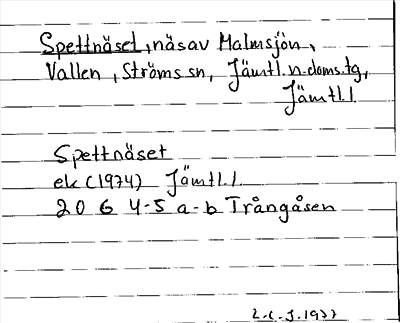 Spettnäset, näs av Malmsjön,
Vallen, Ströms sn, Jämtl. n. doms. tg,
Jämtl. l
Spettnäset
ek (1974) Jämtl. l
20 6 4-5 a-b Trångåsen
L.C.J. 1977